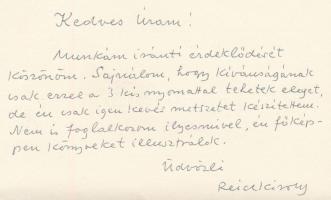 Kedves Uram!
Munkám iránti érdeklődését
köszönöm. Sajnálom, hogy kívánságának
csak ezzel a 3 kis nyomattal tehetek eleget,
de én csak igen kevés metszetet készítettem.
Nem is foglalkozom ilyesmivel, én főkép-
pen könyveket illusztrálok.
Üdvözli
Reich Károly